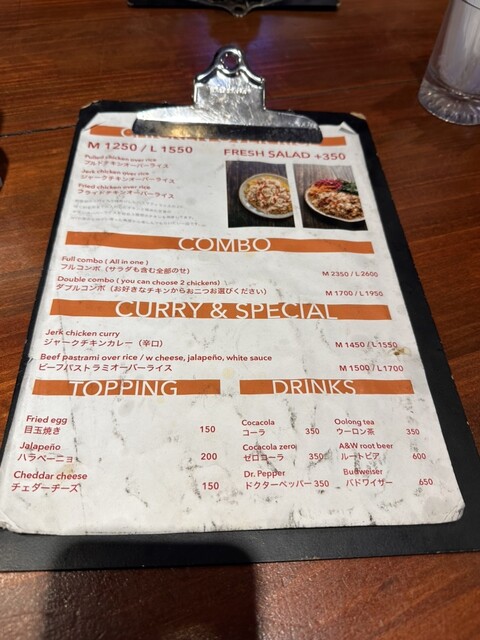 M 1250 / L 1550
FRESH SALAD +350
Pulled chicken over rice
プルドチキンオーバーライス
Jerk chicken over rice
ジャークチキンオーバーライス
Fried chicken over rice
フライドチキンオーバーライス
COMBO
Full combo ( All in one )
フルコンボ（サラダも含む全部のせ）
M 2350 / L 2600
Double combo ( you can choose 2 chickens)
ダブルコンボ（お好きなチキンからお二つお選びください）
M 1700 / L 1950
CURRY & SPECIAL
Jerk chicken curry
ジャークチキンカレー（辛口）
M 1450 / L 1550
Beef pastrami over rice / w cheese, jalapeño, white sauce
ビーフパストラミオーバーライス
M 1500 / L 1700
TOPPING
Fried egg
目玉焼き 150
Jalapeño
ハラペーニョ 200
Cheddar cheese
チェダーチーズ 150
DRINKS
Cocacola
コーラ 350
Oolong tea
ウーロン茶 350
Cocacola zero
ゼロコーラ 350
A&W root beer
ルートビア 600
Dr. Pepper
ドクターペッパー 350
Budweiser
バドワイザー 650